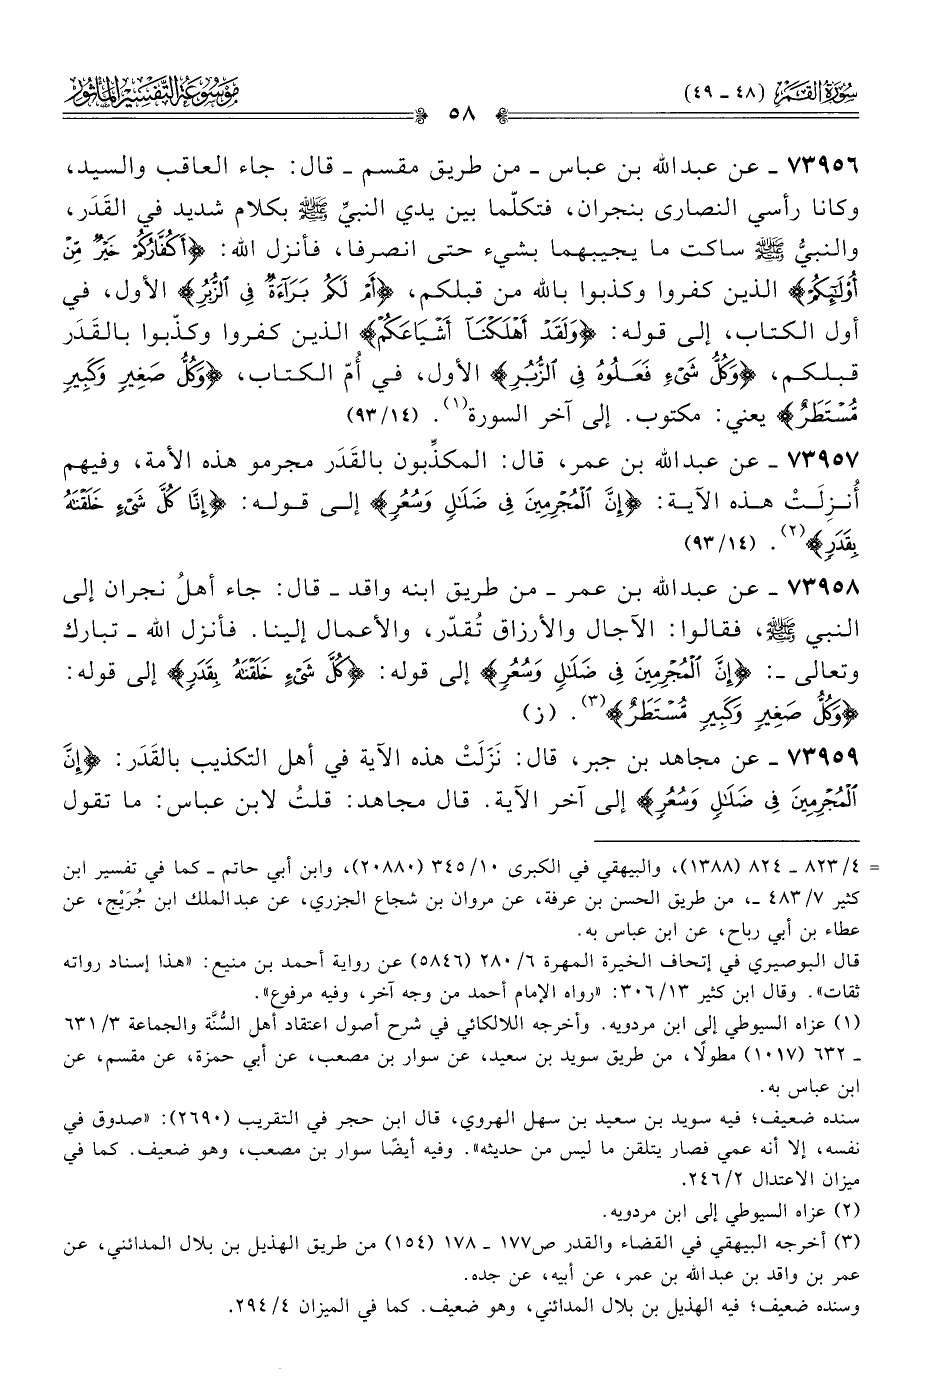 سُورَةُ القَمَر (٤٨ - ٤٩)
٥٨
مَوْسُوعَةُ التَّفْسِيرِ المَأْثُور
٧٣٩٥٦ - عن عبدالله بن عباس - من طريق مقسم - قال: جاء العاقب والسيد،
وكانا رأسي النصارى بنجران، فتكلّما بين يدي النبيِّ ﷺ بكلام شديد في القَدَر،
والنبيُّ ﷺ ساكت ما يجيبهما بشيء حتى انصرفا، فأنزل الله: ﴿أَكُفَّارُكُمْ خَيْرٌ مِّنْ
أُوْلَٰٓئِكُمْ﴾ الذين كفروا وكذبوا بالله من قبلكم، ﴿أَمْ لَكُم بَرَآءَةٌ فِي ٱلزُّبُرِ﴾ الأول، في
أول الكتاب، إلى قوله: ﴿وَلَقَدْ أَهْلَكْنَآ أَشْيَاعَكُمْ﴾ الذين كفروا وكذّبوا بالقَدَر
قبلكم، ﴿وَكُلُّ شَىْءٍ فَعَلُوهُ فِي ٱلزُّبُرِ﴾ الأول، في أُمّ الكتاب، ﴿وَكُلُّ صَغِيرٍ وَكَبِيرٍ
مُّسْتَطَرٌ﴾ يعني: مكتوب. إلى آخر السورة(١). (٩٣/١٤)
٧٣٩٥٧ - عن عبدالله بن عمر، قال: المكذِّبون بالقَدَر مجرمو هذه الأمة، وفيهم
أُنزِلَتْ هذه الآية: ﴿إِنَّ ٱلْمُجْرِمِينَ فِي ضَلَٰلٍ وَسُعُرٍ﴾ إلى قوله: ﴿إِنَّا كُلَّ شَىْءٍ خَلَقْنَٰهُ
بِقَدَرٍ﴾(٢). (٩٣/١٤)
٧٣٩٥٨ - عن عبدالله بن عمر - من طريق ابنه واقد - قال: جاء أهلُ نجران إلى
النبي ﷺ، فقالوا: الآجال والأرزاق تُقدّر، والأعمال إلينا. فأنزل الله - تبارك
وتعالى -: ﴿إِنَّ ٱلْمُجْرِمِينَ فِي ضَلَٰلٍ وَسُعُرٍ﴾ إلى قوله: ﴿كُلَّ شَىْءٍ خَلَقْنَٰهُ بِقَدَرٍ﴾ إلى قوله:
﴿وَكُلُّ صَغِيرٍ وَكَبِيرٍ مُّسْتَطَرٌ﴾(٣). (ز)
٧٣٩٥٩ - عن مجاهد بن جبر، قال: نَزَلَتْ هذه الآية في أهل التكذيب بالقَدَر: ﴿إِنَّ
ٱلْمُجْرِمِينَ فِي ضَلَٰلٍ وَسُعُرٍ﴾ إلى آخر الآية. قال مجاهد: قلتُ لابن عباس: ما تقول
= ٨٢٣/٤ - ٨٢٤ (١٣٨٨)، والبيهقي في الكبرى ٣٤٥/١٠ (٢٠٨٨٠)، وابن أبي حاتم - كما في تفسير ابن
كثير ٤٨٣/٧ -، من طريق الحسن بن عرفة، عن مروان بن شجاع الجزري، عن عبدالملك ابن جُرَيْج، عن
عطاء بن أبي رباح، عن ابن عباس به.
قال البوصيري في إتحاف الخيرة المهرة ٢٨٠/٦ (٥٨٤٦) عن رواية أحمد بن منيع: «هذا إسناد رواته
ثقات». وقال ابن كثير ٣٠٦/١٣: «رواه الإمام أحمد من وجه آخر، وفيه مرفوع».
(١) عزاه السيوطي إلى ابن مردويه. وأخرجه اللالكائي في شرح أصول اعتقاد أهل السُّنَّة والجماعة ٦٣١/٣
- ٦٣٢ (١٠١٧) مطولًا، من طريق سويد بن سعيد، عن سوار بن مصعب، عن أبي حمزة، عن مقسم، عن
ابن عباس به.
سنده ضعيف؛ فيه سويد بن سعيد بن سهل الهروي، قال ابن حجر في التقريب (٢٦٩٠): «صدوق في
نفسه، إلا أنه عمي فصار يتلقن ما ليس من حديثه». وفيه أيضًا سوار بن مصعب، وهو ضعيف. كما في
ميزان الاعتدال ٢٤٦/٢.
(٢) عزاه السيوطي إلى ابن مردويه.
(٣) أخرجه البيهقي في القضاء والقدر ص١٧٧ - ١٧٨ (١٥٤) من طريق الهذيل بن بلال المدائني، عن
عمر بن واقد بن عبدالله بن عمر، عن أبيه، عن جده.
وسنده ضعيف؛ فيه الهذيل بن بلال المدائني، وهو ضعيف. كما في الميزان ٢٩٤/٤.